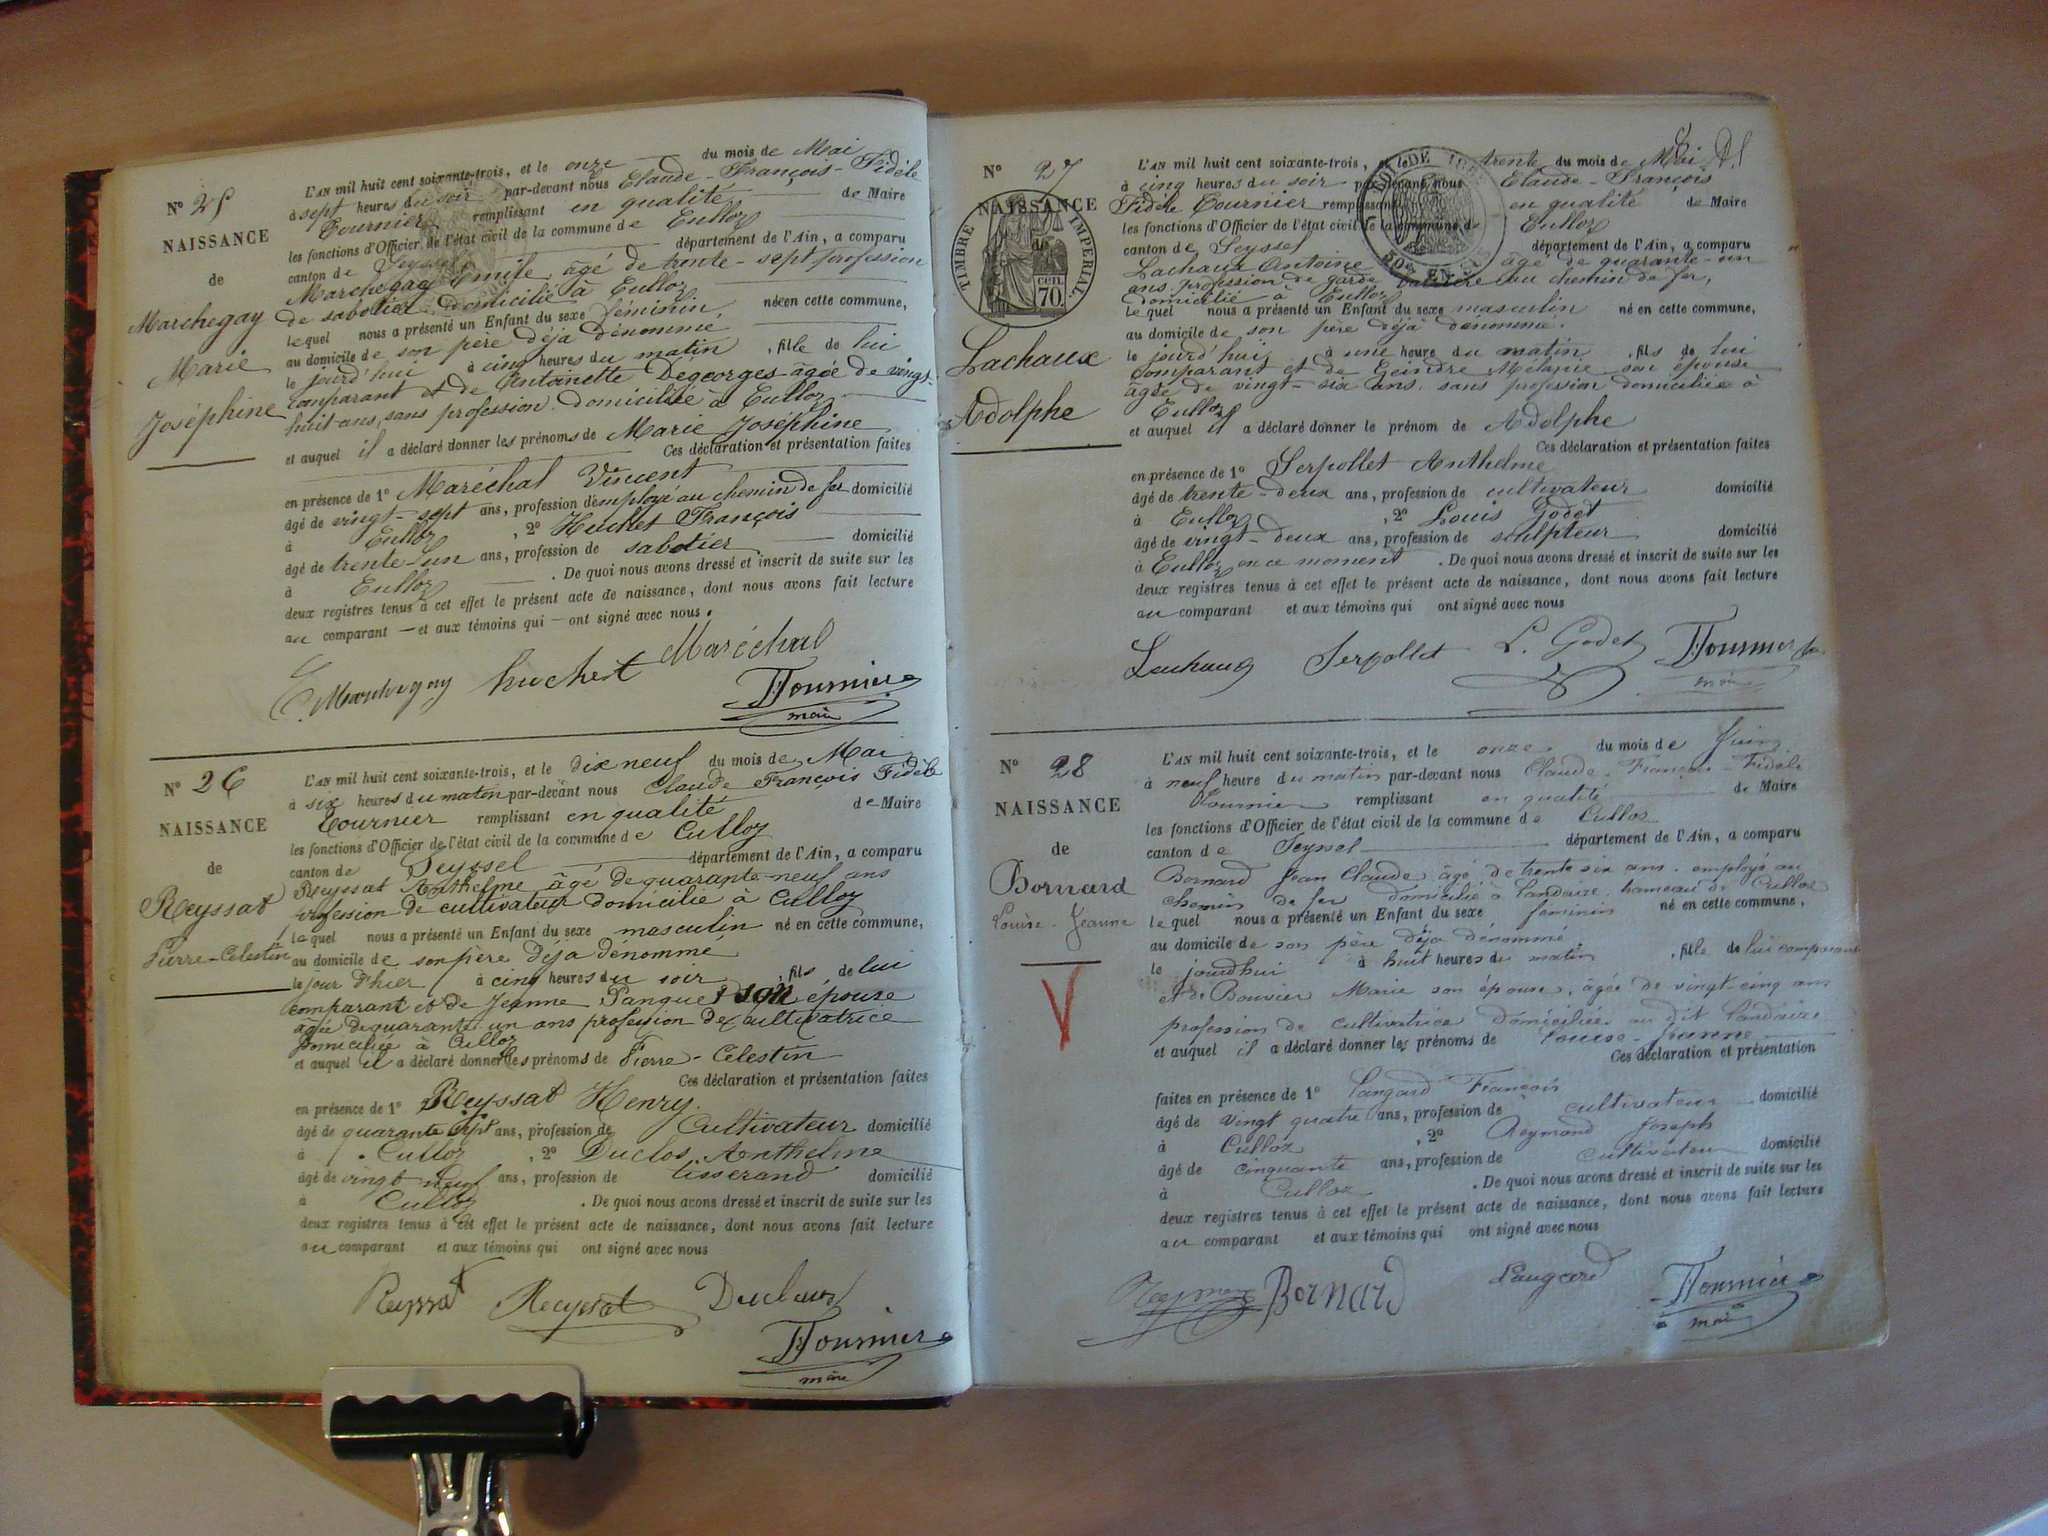 N° 25
NAISSANCE
de
Marchegay
Marie
Joséphine
L'AN mil huit cent soixante-trois, et le onze du mois de Mai
à sept heures du soir par-devant nous Claude-François-Fidèle
Fournier remplissant en qualité de Maire
les fonctions d'Officier de l'état civil de la commune de Culloz
canton de Seyssel département de l'Ain, a comparu
Marchegay Emile, âgé de trente-sept profession
de sabotier domicilié à Culloz
lequel nous a présenté un Enfant du sexe féminin, né en cette commune,
au domicile de son père déjà dénommé
le jourd'hui à cinq heures du matin, fille de lui
comparant et de Antoinette Degeorges âgée de vingt-
huit ans, sans profession domiciliée à Culloz
et auquel il a déclaré donner les prénoms de Marie Joséphine
Ces déclaration et présentation faites
en présence de 1° Maréchal Vincent
âgé de vingt-sept ans, profession d'employé au chemin de fer domicilié
à Culloz, 2° Huchet François
âgé de trente-un ans, profession de sabotier domicilié
à Culloz. De quoi nous avons dressé et inscrit de suite sur les
deux registres tenus à cet effet le présent acte de naissance, dont nous avons fait lecture
au comparant et aux témoins qui ont signé avec nous.
E. Marchegay huchet Maréchal
Fournier
maire
N° 26
NAISSANCE
de
Reyssat
Pierre-Celestin
L'AN mil huit cent soixante-trois, et le dix neuf du mois de Mai
à six heures du matin par-devant nous Claude François Fidèle
Fournier remplissant en qualité de Maire
les fonctions d'Officier de l'état civil de la commune de Culloz
canton de Seyssel département de l'Ain, a comparu
Reyssat Anthelme âgé de quarante-neuf ans
profession de cultivateur domicilié à Culloz
lequel nous a présenté un Enfant du sexe masculin né en cette commune,
au domicile de son père déjà dénommé
le jour d'hier à cinq heures du soir, fils de lui
comparant et de Jeanne Panque son épouse
âgée de quarante un ans profession de cultivatrice
domiciliée à Culloz
et auquel il a déclaré donner les prénoms de Pierre-Celestin
Ces déclaration et présentation faites
en présence de 1° Reyssat Henry
âgé de quarante sept ans, profession de Cultivateur domicilié
à Culloz, 2° Duclos Anthelme
âgé de vingt neuf ans, profession de tisserand domicilié
à Culloz. De quoi nous avons dressé et inscrit de suite sur les
deux registres tenus à cet effet le présent acte de naissance, dont nous avons fait lecture
au comparant et aux témoins qui ont signé avec nous
Reyssat Reyssat
Fournier
maire
N° 27
NAISSANCE
de
TIMBRE IMPERIAL
CEN. 70
Lachaux
Adolphe
L'AN mil huit cent soixante-trois, et le trente du mois de Mai
à cinq heures du soir par-devant nous Claude-François
Fidèle Fournier remplissant en qualité de Maire
les fonctions d'Officier de l'état civil de la commune de Culloz
canton de Seyssel département de l'Ain, a comparu
Lachaux Antoine âgé de quarante-un
ans, profession de garde barrière au chemin de fer,
domicilié à Culloz
lequel nous a présenté un Enfant du sexe masculin né en cette commune,
au domicile de son père déjà dénommé.
le jourd'hui à une heure du matin, fils de lui
comparant et de Geindre Mélanie son épouse
âgée de vingt-six ans, sans profession domiciliée à
Culloz
et auquel il a déclaré donner le prénom de Adolphe
Ces déclaration et présentation faites
en présence de 1° Serpollet Anthelme
âgé de trente-deux ans, profession de cultivateur domicilié
à Culloz, 2° Louis Godet
âgé de vingt-deux ans, profession de sculpteur domicilié
à Culloz en ce moment. De quoi nous avons dressé et inscrit de suite sur les
deux registres tenus à cet effet le présent acte de naissance, dont nous avons fait lecture
au comparant et aux témoins qui ont signé avec nous
Lachaux Serpollet L. Godet Fournier
maire
N° 28
NAISSANCE
de
Bornard
Louise-Jeanne
L'AN mil huit cent soixante-trois, et le onze du mois de Juin
à neuf heure du matin par-devant nous Claude-François-Fidèle
Fournier remplissant en qualité de Maire
les fonctions d'Officier de l'état civil de la commune de Culloz
canton de Seyssel département de l'Ain, a comparu
Bornard Jean Claude âgé de trente six ans, employé au
chemin de fer domicilié à Landaize hameau de Culloz
lequel nous a présenté un Enfant du sexe feminin né en cette commune,
au domicile de son père déja dénommé
le jourdhui à huit heures du matin, fille de lui comparant
et de Bouvier Marie son épouse, âgée de vingt cinq ans
profession de cultivatrice domiciliée au dit Landaize
et auquel il a déclaré donner les prénoms de Louise-Jeanne
Ces déclaration et présentation
faites en présence de 1° Langard François
âgé de vingt quatre ans, profession de cultivateur domicilié
à Culloz, 2° Reymond Joseph
âgé de cinquante ans, profession de Cultivateur domicilié
à Culloz. De quoi nous avons dressé et inscrit de suite sur les
deux registres tenus à cet effet le présent acte de naissance, dont nous avons fait lecture
au comparant et aux témoins qui ont signé avec nous
Bornard Langard Fournier
maire